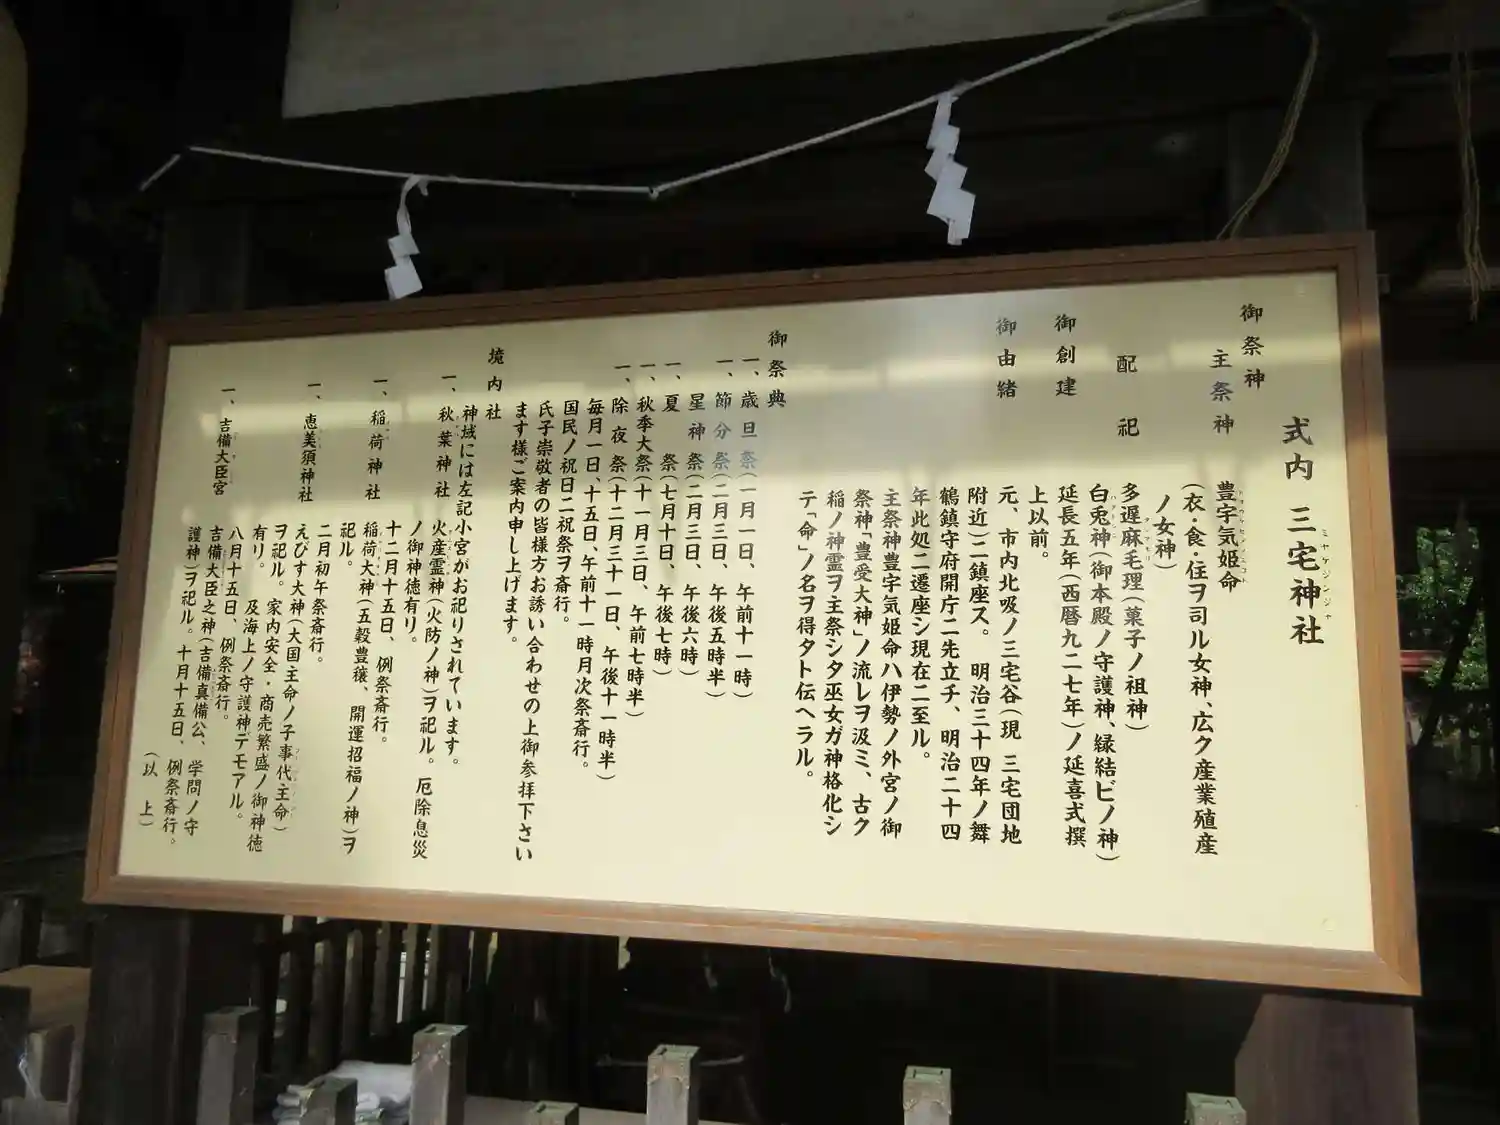 式内 三宅神社
御祭神
主祭神 豊宇気姫命
(衣・食・住ヲ司ル女神、広ク産業殖産
ノ女神)
配祀 多遅麻毛理(菓子ノ祖神)
白兎神(御本殿ノ守護神、縁結ビノ神)
御創建 延長五年(西暦九二七年)ノ延喜式撰
上以前。
御由緒 元、市内北吸ノ三宅谷(現 三宅団地
附近)ニ鎮座ス。 明治三十四年ノ舞
鶴鎮守府開庁ニ先立チ、明治二十四
年此処ニ遷座シ現在ニ至ル。
主祭神豊宇気姫命ハ伊勢ノ外宮ノ御
祭神「豊受大神」ノ流レヲ汲ミ、古ク
稲ノ神霊ヲ主祭シタ巫女ガ神格化シ
テ「命」ノ名ヲ得タト伝ヘラル。
御祭典
一、歳旦祭(一月一日、午前十一時)
一、節分祭(二月三日、午後五時半)
星神祭(二月三日、午後六時)
一、夏祭(七月十日、午後七時)
一、秋季大祭(十一月三日、午前七時半)
一、除夜祭(十二月三十一日、午後十一時半)
毎月一日、十五日、午前十一時月次祭斎行。
国民ノ祝日ニ祝祭ヲ斎行。
氏子崇敬者の皆様方お誘い合わせの上御参拝下さい
ます様ご案内申し上げます。
境内社
神域には左記小宮がお祀りされています。
一、秋葉神社 火産霊神(火防ノ神)ヲ祀ル。厄除息災
ノ御神徳有リ。
十二月十五日、例祭斎行。
一、稲荷神社 稲荷大神(五穀豊穣、開運招福ノ神)ヲ
祀ル。
二月初午祭斎行。
一、恵美須神社 えびす大神(大国主命ノ子事代主命)
ヲ祀ル。 家内安全・商売繁盛ノ御神徳
有リ。 及海上ノ守護神デモアル。
八月十五日、例祭斎行。
一、吉備大臣宮 吉備大臣之神(吉備真備公、学問ノ守
護神)ヲ祀ル。十月十五日、例祭斎行。
(以上)